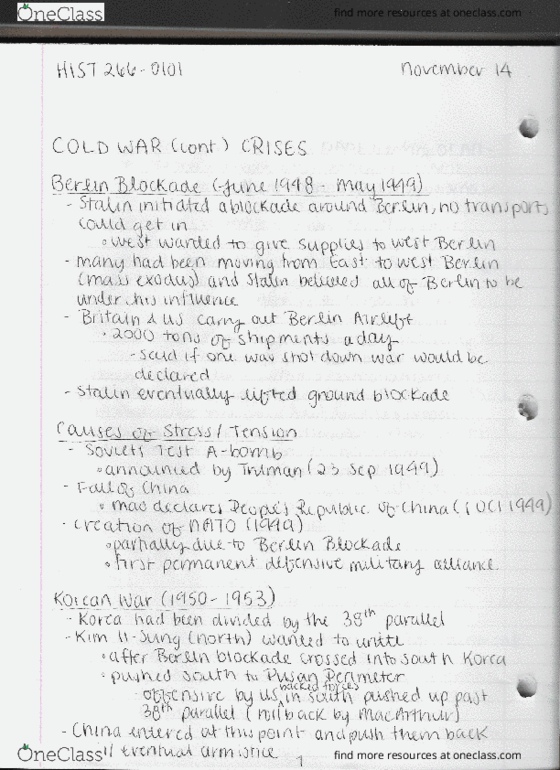 OneClass
find more resources at oneclass.com
HIST 266-0101
november 14
COLD WAR (cont) CRISES
Berlin Blockade (June 1948 - May 1949)
- Stalin initiated a blockade around Berlin, no transports
could get in
• West wanted to give supplies to West Berlin
- many had been moving from East to West Berlin
(mass exodus) and Stalin believed all of Berlin to be
under his influence
- Britain & US carry out Berlin Airlift
• 2000 tons of shipments a day
- said if one was shot down war would be
declared
- Stalin eventually lifted ground blockade
Causes of Stress/Tension
- Soviets Test A-bomb
• announced by Truman (23 Sep 1949)
- Fall of China
• Mao declares People's Republic of China (1 OCT 1949)
- Creation of NATO (1949)
• partially due to Berlin Blockade
• First permanent defensive military alliance.
Korean War (1950-1953)
- Korea had been divided by the 38th parallel
- Kim Il-Sung (north) wanted to unite
• after Berlin blockade crossed into South Korea
• pushed south to Pusan Perimeter
- offensive by US backed forces in South pushed up past
38th parallel (rollback by MacArthur)
- China entered at this point and push them back
eventual armistice
1
OneClass
find more resources at oneclass.com